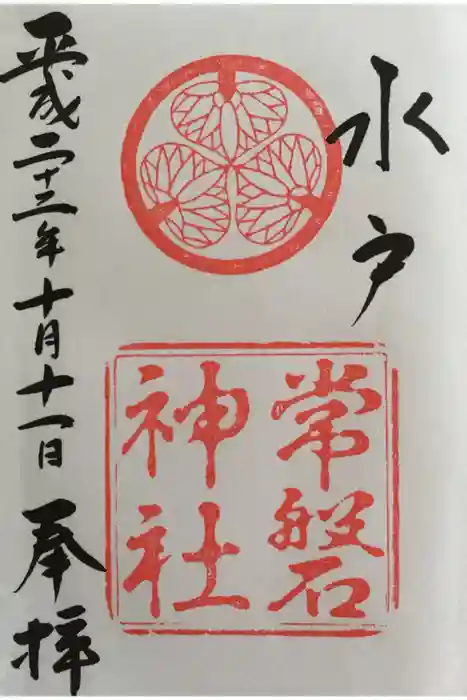 水戸
常磐
神社
平成二十三年十月十一日 奉拝